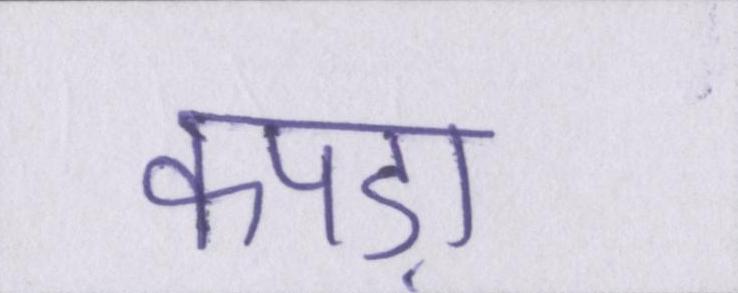 कपड़ा